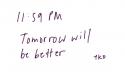 11:59 PM
Tomorrow will
be better
TKO